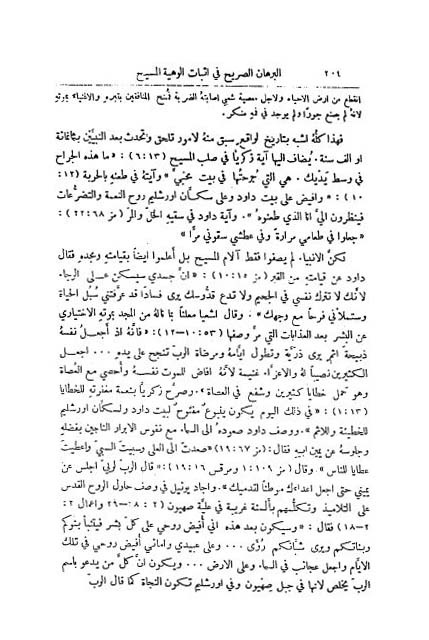 ٢٠٤ البرهان الصريح في اثبات الوهية المسيح
انقطع من ارض الاحياء ولاجل معصية شعبي اصابتهُ الضربة فُمنح المنافقين بقبره والاغنياء بموتهِ
لانهُ لم يصنع جورًا ولم يوجد في فمهِ مكر.
فهذا كلّهُ اشبه بتاريخ لواقعٍ سبق منهُ لامور تلحق وتحدث بعد النبيّين بثمانمائة
او الف سنة. يُضاف اليها آية زكريّا في صلب المسيح (٦:١٣): «ما هذه الجراح
في وسط يديك. هي التي جُرحتُها في بيت محبّيَّ» وآيتهُ في طعنهِ بالحربة (١٢:
١٠): «وافيض على بيت داود وعلى سكّان اورشليم روح النعمة والتضرُّعات
فينظرون اليَّ انا الذي طعنوهُ». وآية داود في سقيهِ الخلّ والمرّ (مز ٢٢:٦٨):
«جعلوا في طعامي مرارةً وفي عطشي سقوني مرًّا»
لكنَّ الانبياء لم يصفوا فقط آلام المسيح بل أعلموا ايضاً بقيامتهِ ومجده فقال
داود عن قيامتهِ من القبر (مز ١٠:١٥): «انَّ جسدي سيسكن على الرجاء.
لانَّك لا تترك نفسي في الجحيم ولا تدع قدُّوسك يرى فسادًا قد عرَّفتني سُبُل الحياة
وستملأني فرحاً مع وجهك». وقال اشعيا معلناً بما نالهُ من المجد بموتهِ الاختياري
عن البشر بعد العذابات التي مرَّ وصفها (١٠:٥٣-١٢): «فانَّهُ اذ أَجعل نفسهُ
ذبيحة اثم يرى ذرّيَّة وتطول ايَّامهُ ومرضاة الربّ تنجح على يدهِ ... اجعل
الكثيرين نصيباً لهُ والاعزَّاء غنيمة لانَّهُ افاض للموت نفسهُ وأُحصي مع العُصاة
وهو حمل خطايا كثيرين وشفع في العصاة». وصرَّح زكريَّا بنعمة مغفرتهِ للخطايا
(١:١٣): «في ذلك اليوم يكون ينبوعٌ مفتوحٌ لبيت داود ولسكَّان اورشليم
للخطيئة وللاثم». ووصف داود صعودهُ الى السماء مع نفوس الابرار الناجين بفضلهِ
وجلوسهُ عن يمين ابيهِ فقال: (مز ١٩:٦٧) «صعدتَ الى العلى وسبيتَ السبيَ واعطيتَ
عطايا للناس» وقال (مز ١:١٠٩ ومرقس ١٩:١٦): «قال الربّ لربّي اجلس عن
يميني حتى اجعل اعداءك موطئاً لقدميك». واجاد يوئيل في وصف حلول الروح القدس
على التلاميذ وتكلُّمهم بألسنة غريبة في علّيَّة صهيون (٢: ٢٨-٢٩ واعمال ٢:
٢-١٨) فقال: «وسيكون بعد هذه اني أُفيض روحي على كلّ بشر فيتنبأُ بنوكم
وبناتكم ويرى شبَّانكم رُؤًى ... وعلى عبيدي وامائي أُفيض روحي في تلك
الايَّام واجعل عجائب في السماء وعلى الارض ... ويكون انَّ كلَّ من يدعو باسم
الربّ يخلص لانها في جبل صهيون وفي اورشليم تكون النجاة كما قال الربّ